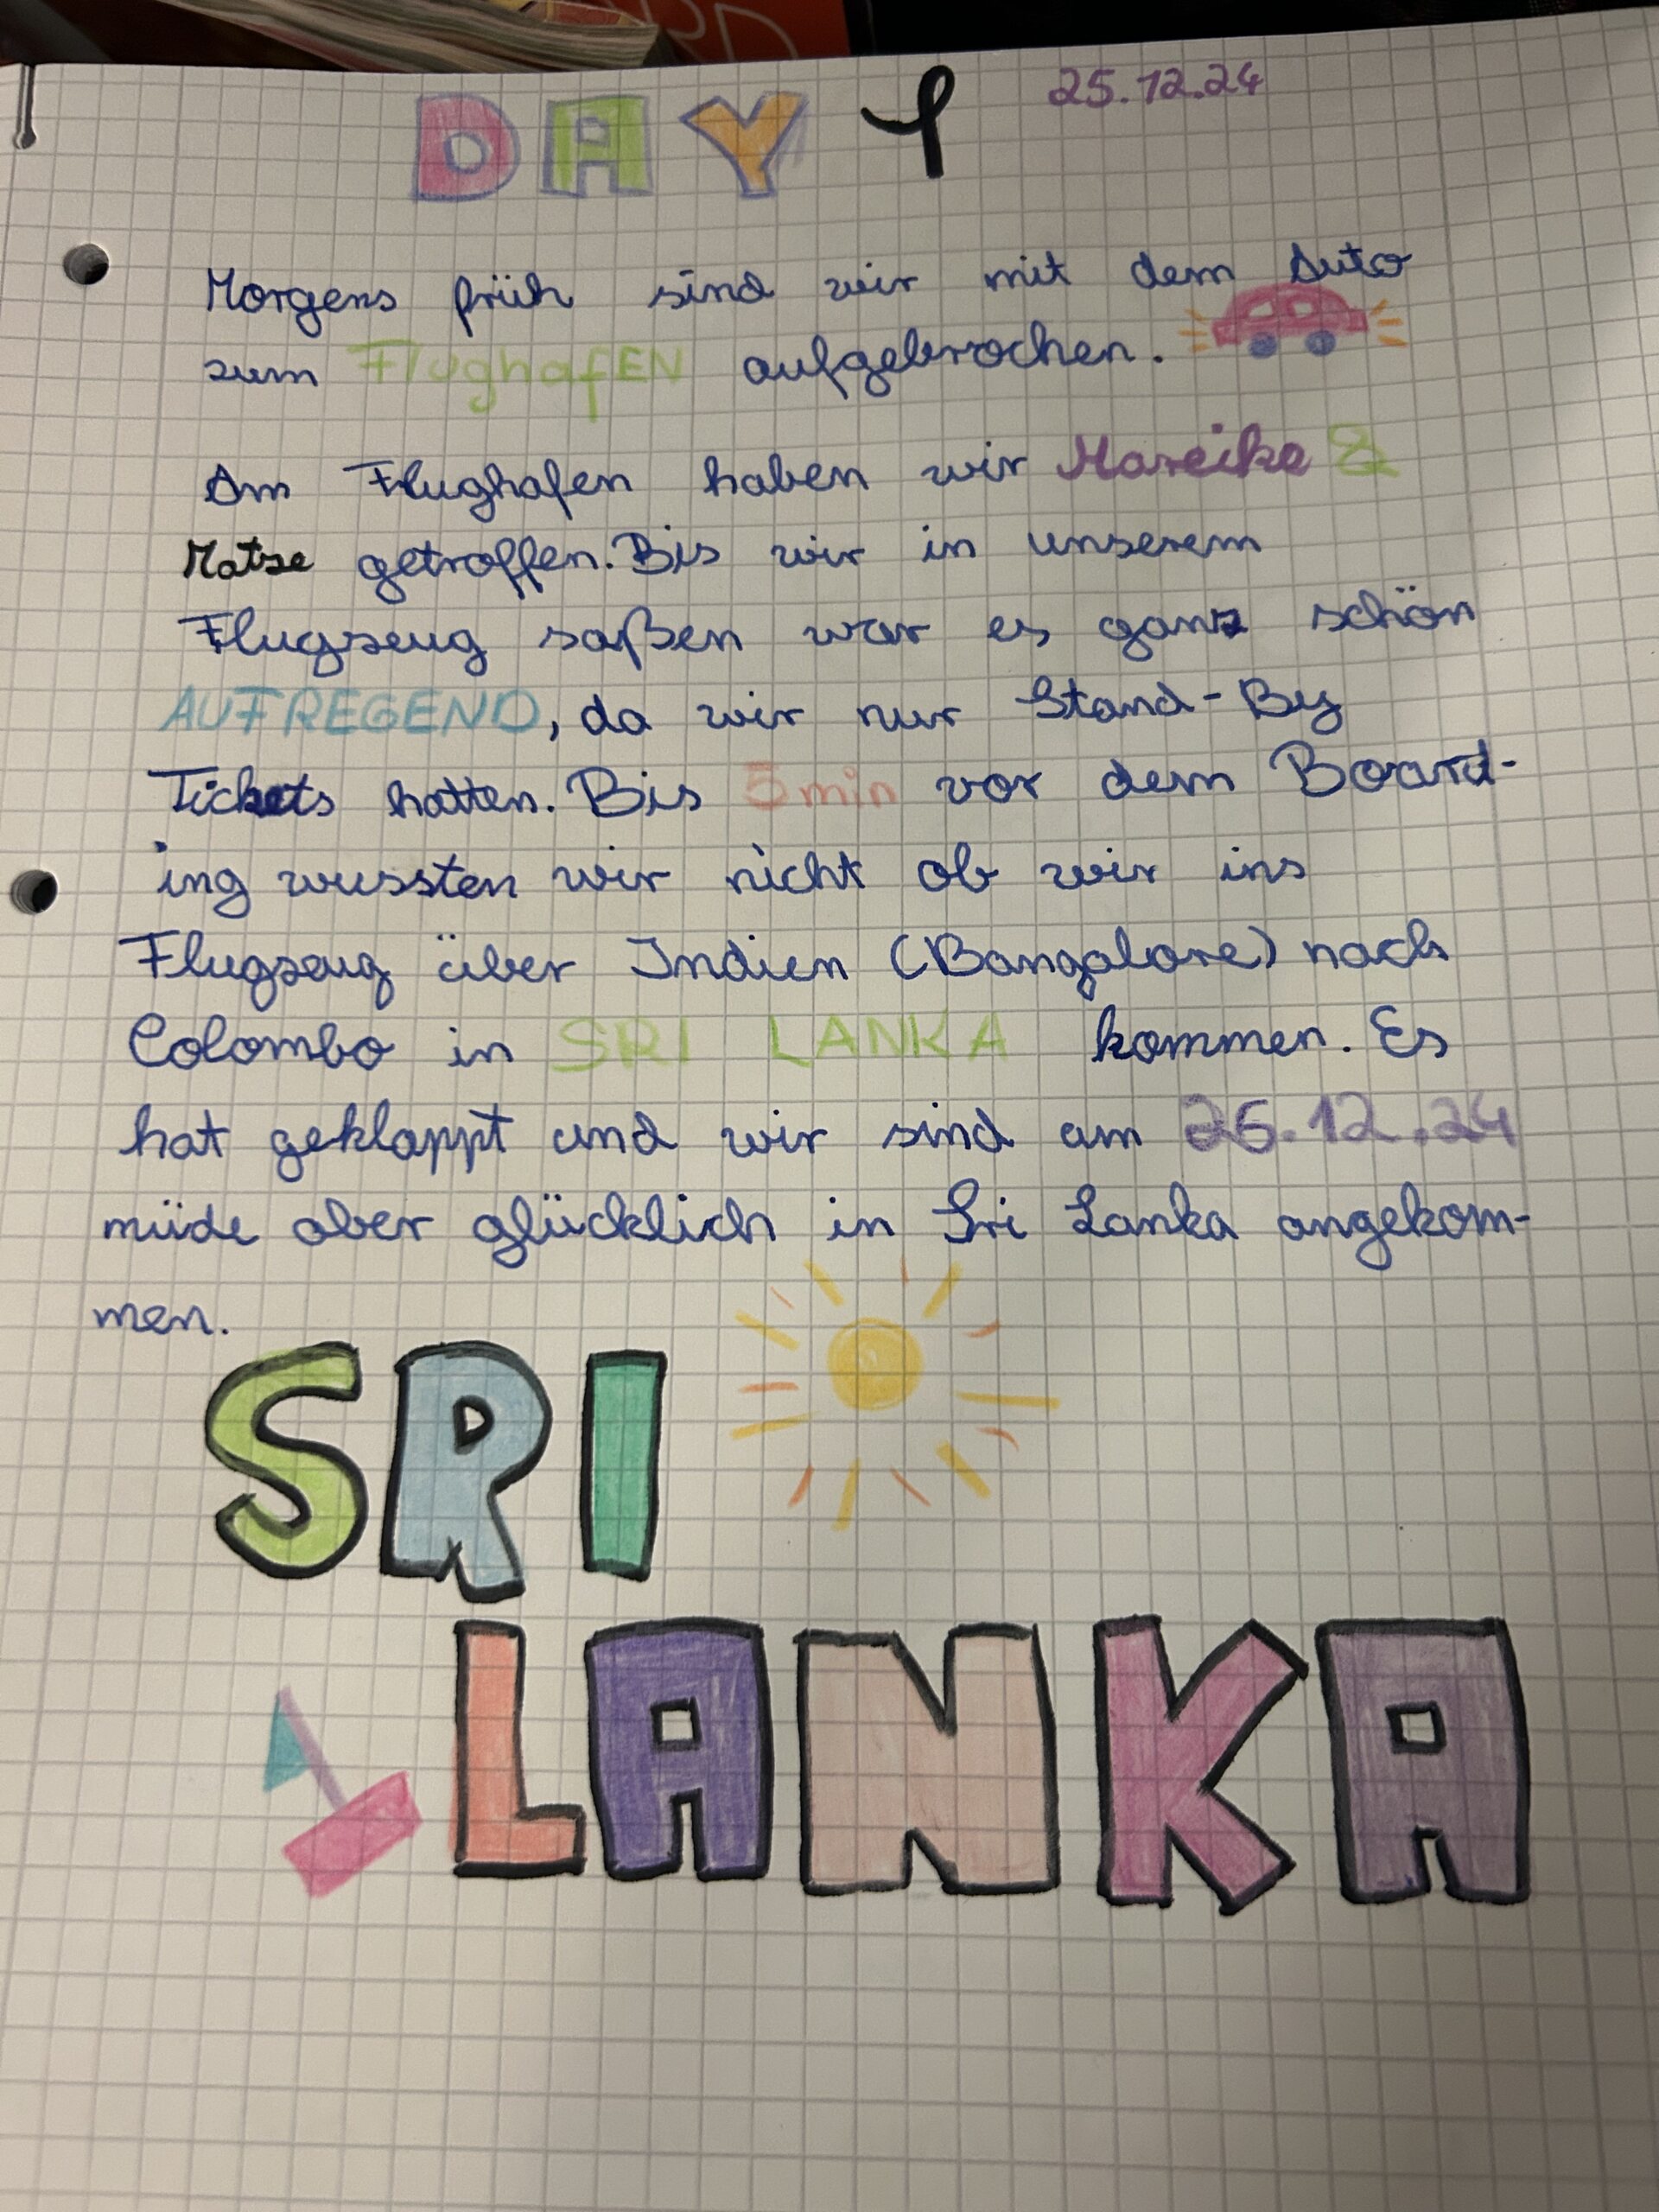 DAY 1 25.12.24
Morgens früh sind wir mit dem Auto
zum FlughafEN aufgebrochen.
Am Flughafen haben wir Mareike &
Matze getroffen. Bis wir in unserem
Flugzeug saßen war es ganz schön
AUFREGEND, da wir nur Stand-By
Tickets hatten. Bis 5min vor dem Board-
ing wussten wir nicht ob wir ins
Flugzeug über Indien (Bangalore) nach
Colombo in SRI LANKA kommen. Es
hat geklappt und wir sind am 26.12.24
müde aber glücklich in Sri Lanka angekom-
men.
SRI
LANKA